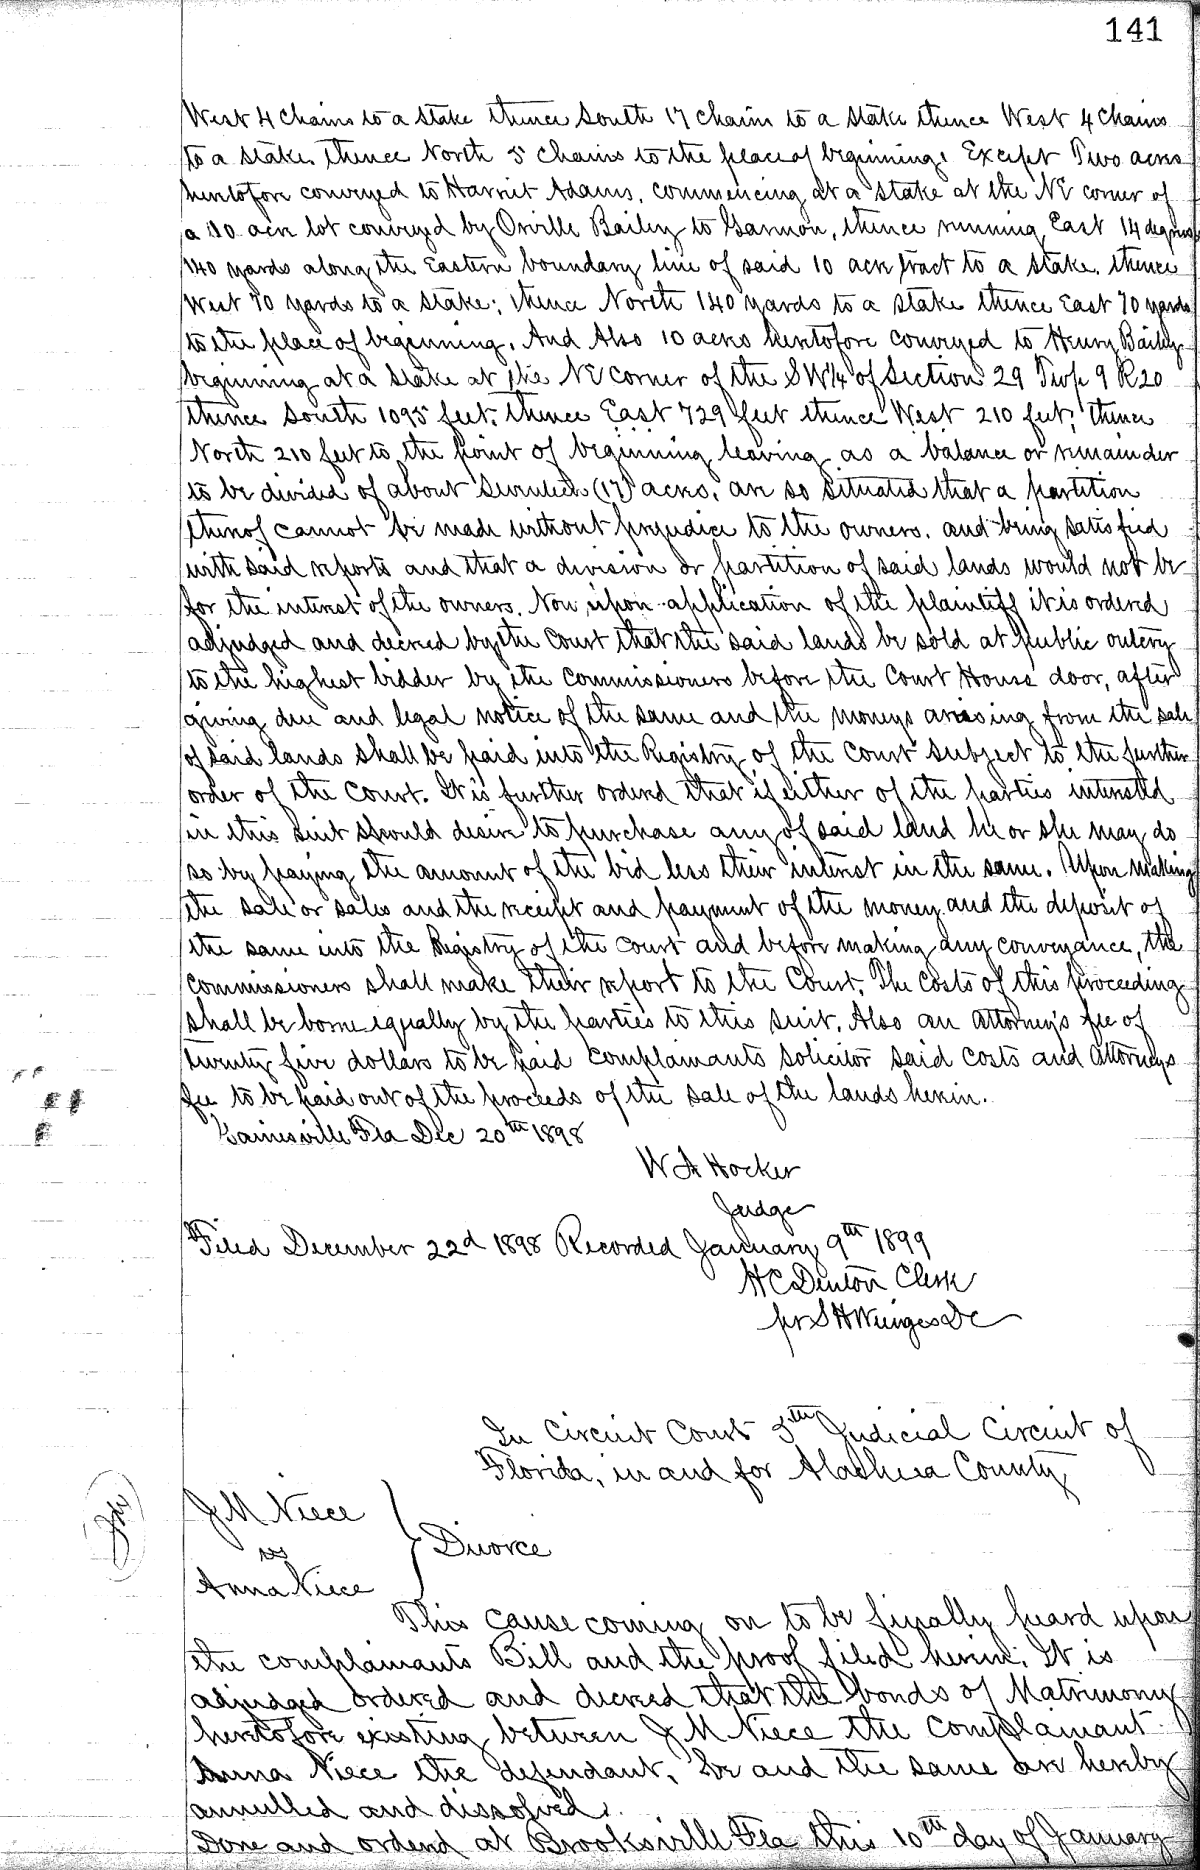 141
West 4 chains to a stake thence South 17 chains to a stake thence West 4 chains
to a stake. thence North 5 chains to the place of beginning. Except Two acres
heretofore conveyed to Harriet Adams. commencing at a stake at the NE corner of
a 10 acre lot conveyed by Orville Bailey to Garmon, thence running East 14 degrees
140 yards along the Eastern boundary line of said 10 acre tract to a stake. thence
West 70 yards to a stake; thence North 140 yards to a stake thence East 70 yards
to the place of beginning. And Also 10 acres heretofore conveyed to Henry Bailey
beginning at a stake at the NE corner of the SW1/4 of Section 29 Twp 9 R 20
thence South 1095 feet. thence East 729 feet thence West 210 feet; thence
North 210 feet to the point of beginning leaving as a balance or remainder
to be divided of about Seventeen (17) acres. are so situated that a partition
thereof cannot be made without prejudice to the owners. and being satisfied
with said reports and that a division or partition of said lands would not be
for the interest of the owners. Now upon application of the plaintiff it is ordered
adjudged and decreed by the Court that the said lands be sold at public outcry
to the highest bidder by the commissioners before the Court House door, after
giving due and legal notice of the same and the moneys arising from the sale
of said lands shall be paid into the Registry of the Court subject to the further
order of the Court. It is further ordered that if either of the parties interested
in this suit should desire to purchase any of said land he or she may do
so by paying the amount of the bid less their interest in the same. Upon making
the sale or sales and the receipt and payment of the money and the deposit of
the same into the Registry of the Court and before making any conveyance, the
commissioners shall make their report to the Court. The costs of this proceeding
shall be borne equally by the parties to this suit. Also an attorney's fee of
twenty five dollars to be paid complainants solicitor said costs and attorneys
fee to be paid out of the proceeds of the sale of the lands herein.
Gainesville Fla Dec 20th 1898
W A Hocker
Judge
Filed December 22d 1898 Recorded January 9th 1899
H C Denton Clerk
pr S H Wienges DC
In Circuit Court 5th Judicial Circuit of
Florida, in and for Alachua County
J M Niece
vs
Anna Niece
} Divorce
This cause coming on to be finally heard upon
the complainants Bill and the proof filed herein; It is
adjudged ordered and decreed that the bonds of Matrimony
heretofore existing between J M Niece the complainant
Anna Niece the defendant, be and the same are hereby
annulled and dissolved.
Done and ordered at Brooksville Fla this 10th day of January